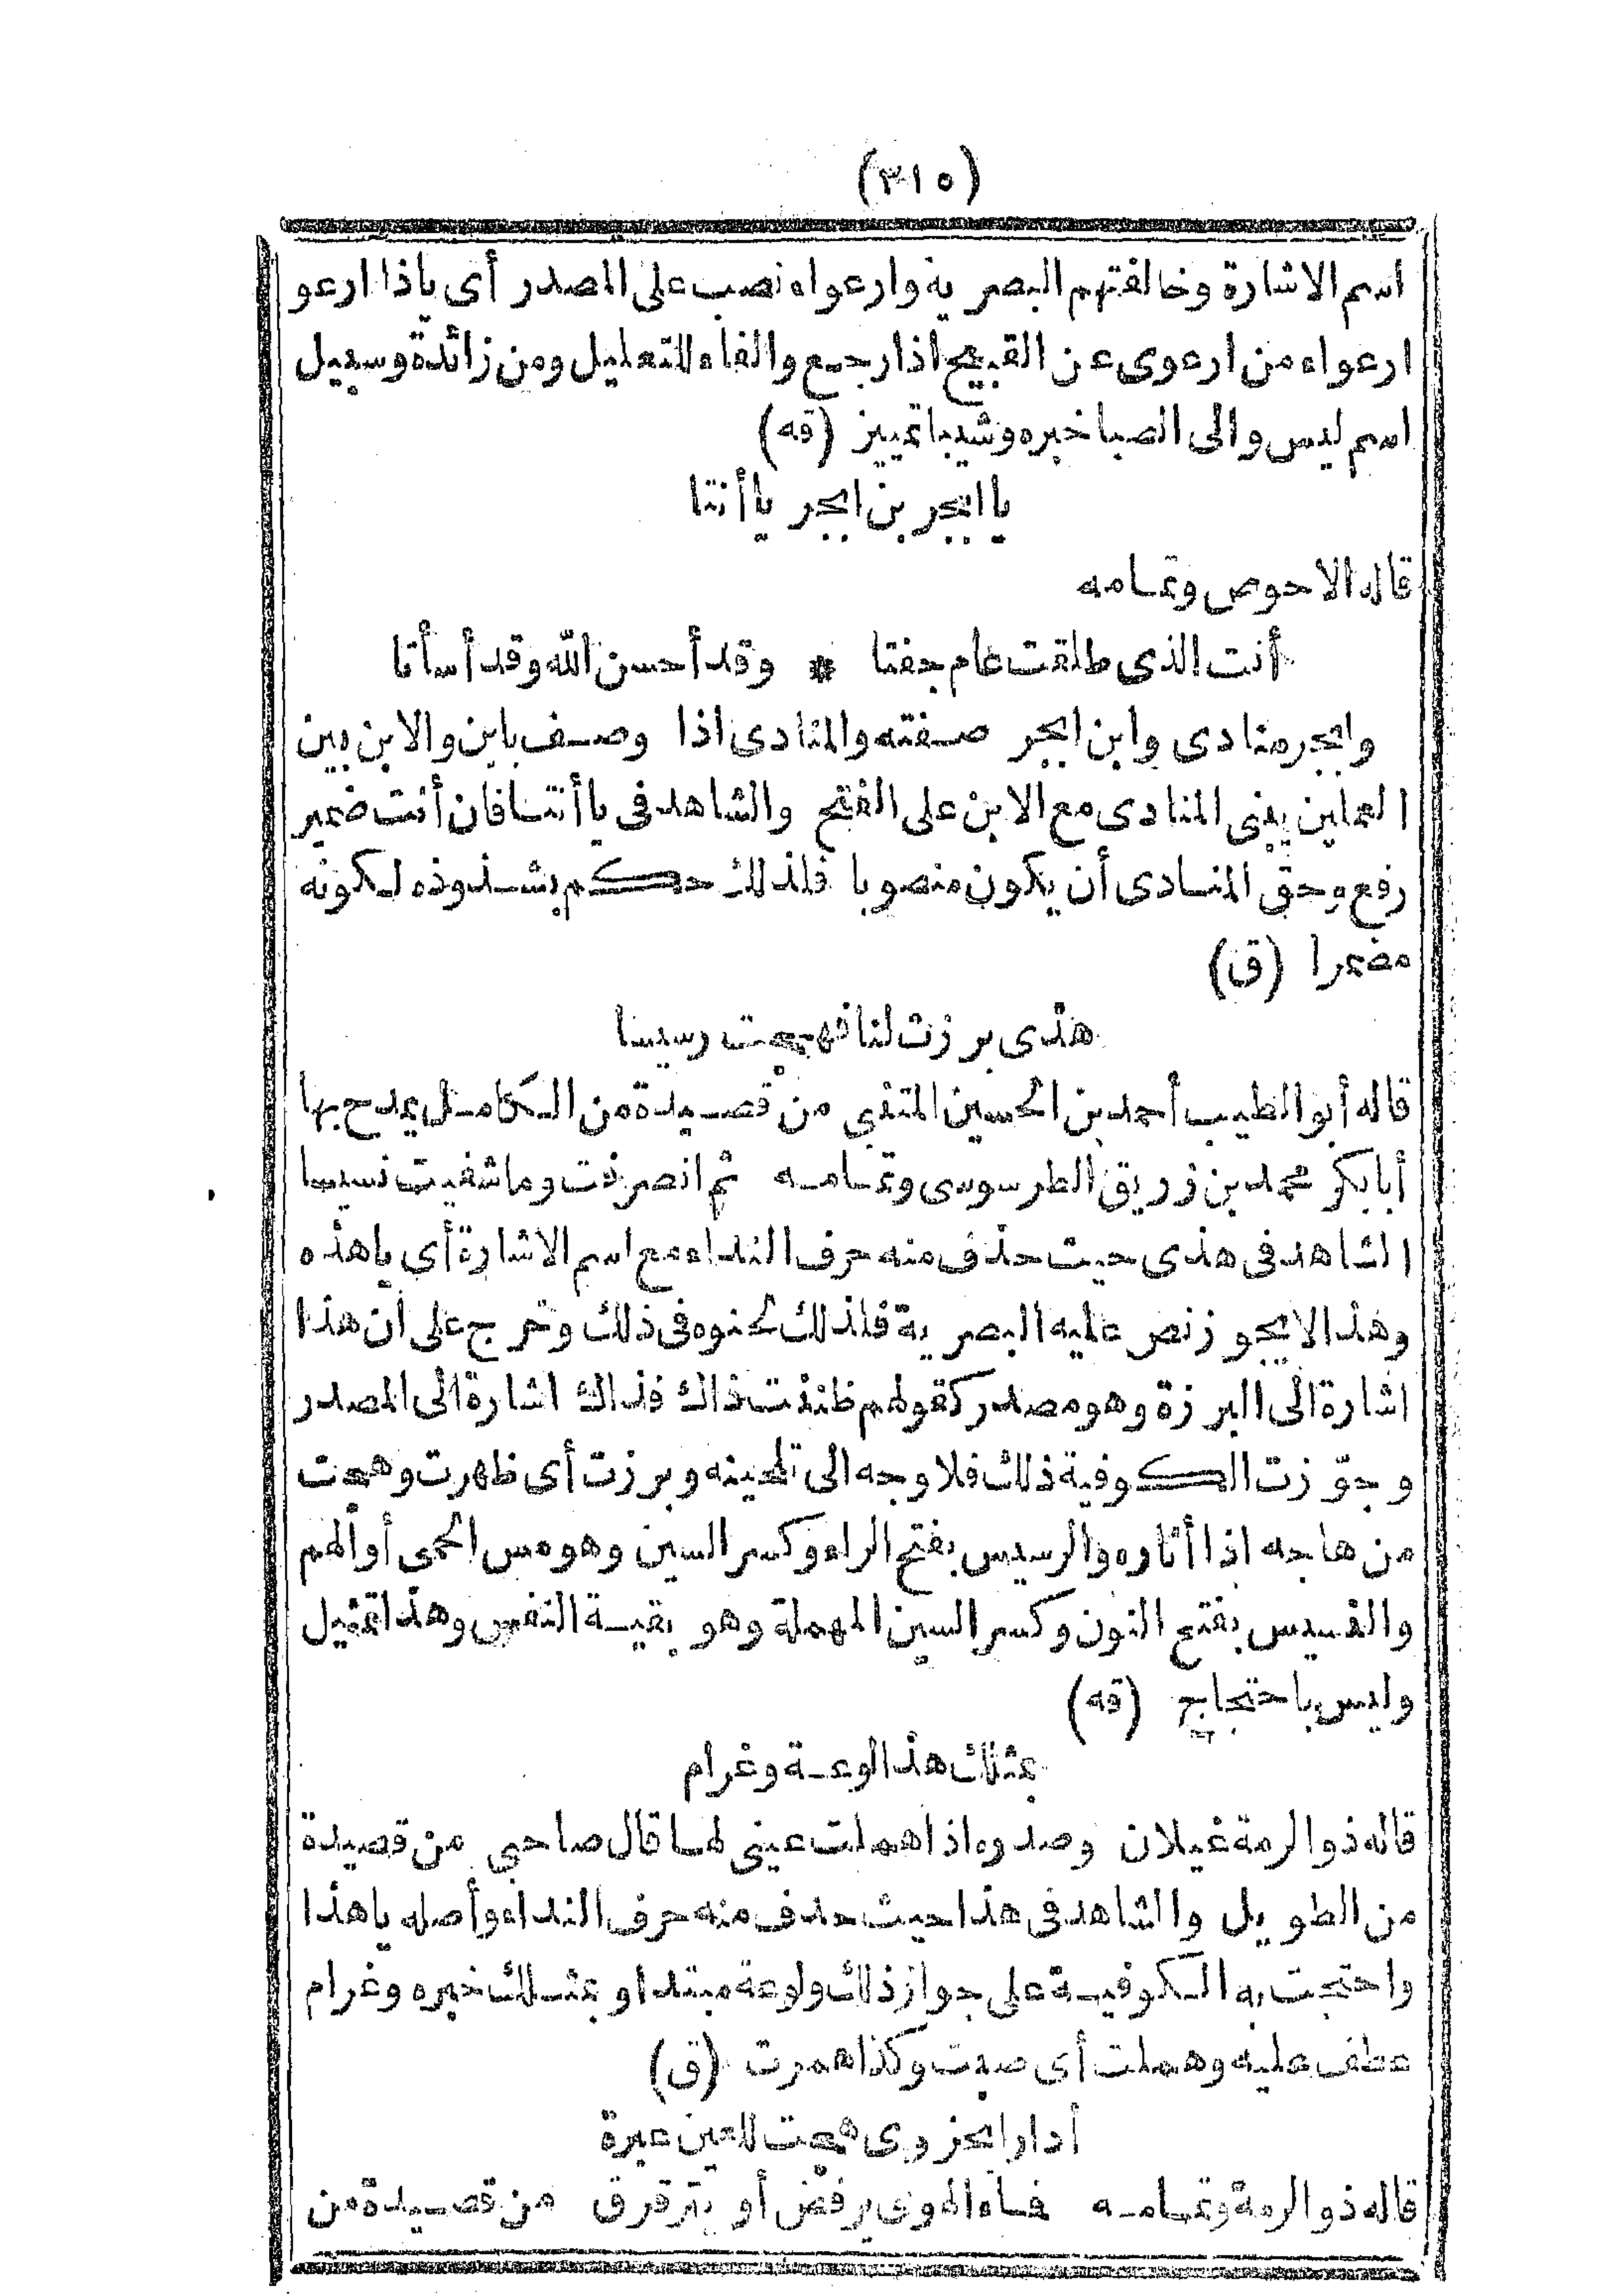 (٣١٥)
اسم الاشارة وخالفتهم البصرية وارعواء نصب على المصدر أى ياذا ارعو
ارعواء من ارعوى عن القبيح اذا رجع والفاء للتعليل ومن زائدة وسبيل
اسم ليس والى الصبا خبره وشيبا تمييز (قه)
يا ابجر بن ابجر يا أنتا
قاله الاحوص وتمامه
أنت الذى طلقت عام جعتا * وقد أحسن الله وقد أسأتا
وابجر منادى وابن ابجر صفته والمنادى اذا وصف بابن والابن بين
العملين يبنى المنادى مع الابن على الفتح والشاهد فى يا أنتا فان أنت ضمير
رفع وحق المنادى أن يكون منصوبا فلذلك حكم بشذوذه لكونه
مضمرا (ق)
هذى برزت لنا فهجت رسيسا
قاله أبو الطيب أحمد بن الحسين المتنبى من قصيدة من الكامل يمدح بها
أبا بكر محمد بن زريق الطرسوسى وتمامه ثم انصرفت وما شفيت نسيسا
الشاهد فى هذى حيث حذف منه حرف النداء مع اسم الاشارة أى يا هذه
وهذا لا يجوز نص عليه البصرية فلذلك لحنوه فى ذلك وخرج على أن هذا
اشارة الى البرزة وهو مصدر كقولهم ظننت ذاك فذاك اشارة الى المصدر
وجوّزت الكوفية ذلك فلا وجه الى تلحينه وبرزت أى ظهرت وهجت
من هاجه اذا أثاره والرسيس بفتح الراء وكسر السين وهو مس الحمى أو الهم
والنسيس بفتح النون وكسر السين المهملة وهو بقية النفس وهذا تمثيل
وليس باحتجاج (قه)
بمثلك هذا لوعة وغرام
قاله ذو الرمة غيلان وصدره اذا هملت عينى لها قال صاحبى من قصيدة
من الطويل والشاهد فى هذا حيث حذف منه حرف النداء وأصله يا هذا
واحتجت به الكوفية على جواز ذلك ولوعة مبتدا وبمثلك خبره وغرام
عطف عليه وهملت أى صبت وكذا همرت (ق)
أدارا بحزوى هجت للعين عبرة
قاله ذو الرمة وتمامه فماء الهوى يرفض أو يترقرق من قصيدة من